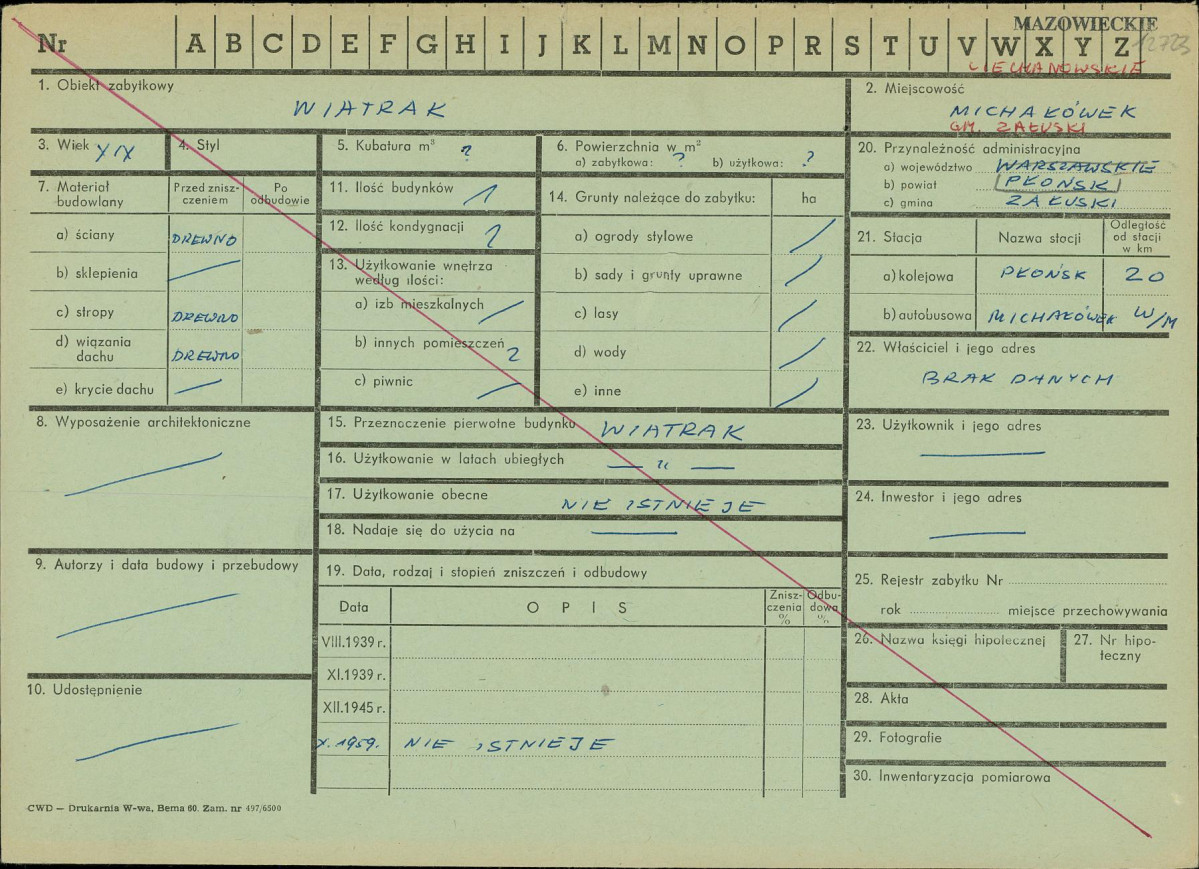 MAZOWIECKIE
Nr A B C D E F G H I J K L M N O P R S T U V W X Y Z 12723
CIECHANOWSKIE
1. Obiekt zabytkowy
WIATRAK
2. Miejscowość
MICHAŁÓWEK
GM. ZAŁUSKI
3. Wiek XIX
4. Styl
5. Kubatura m³ ?
6. Powierzchnia w m²
a) zabytkowa: ? b) użytkowa: ?
20. Przynależność administracyjna
a) województwo WARSZAWSKIE
b) powiat PŁOŃSK
c) gmina ZAŁUSKI
7. Materiał budowlany
Przed zniszczeniem
Po odbudowie
a) ściany DREWNO
b) sklepienia
c) stropy DREWNO
d) wiązania dachu DREWNO
e) krycie dachu
11. Ilość budynków 1
12. Ilość kondygnacji 2
13. Użytkowanie wnętrza według ilości:
a) izb mieszkalnych
b) innych pomieszczeń 2
c) piwnic
14. Grunty należące do zabytku: ha
a) ogrody stylowe
b) sady i grunty uprawne
c) lasy
d) wody
e) inne
21. Stacja Nazwa stacji Odległość od stacji w km
a) kolejowa PŁOŃSK 20
b) autobusowa MICHAŁÓWEK W/M
22. Właściciel i jego adres
BRAK DANYCH
8. Wyposażenie architektoniczne
15. Przeznaczenie pierwotne budynku WIATRAK
16. Użytkowanie w latach ubiegłych — " —
17. Użytkowanie obecne NIE ISTNIEJE
18. Nadaje się do użycia na
23. Użytkownik i jego adres
24. Inwestor i jego adres
9. Autorzy i data budowy i przebudowy
19. Data, rodzaj i stopień zniszczeń i odbudowy
Data OPIS Zniszczenia % Odbudowa %
VIII.1939 r.
XI.1939 r.
XII.1945 r.
X. 1959. NIE ISTNIEJE
25. Rejestr zabytku Nr
rok miejsce przechowywania
26. Nazwa księgi hipotecznej
27. Nr hipoteczny
10. Udostępnienie
28. Akta
29. Fotografie
30. Inwentaryzacja pomiarowa
CWD — Drukarnia W-wa, Bema 60. Zam. nr 497/6500